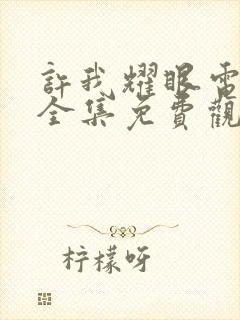 許我耀眼電
全集免費觀
柠檬呀